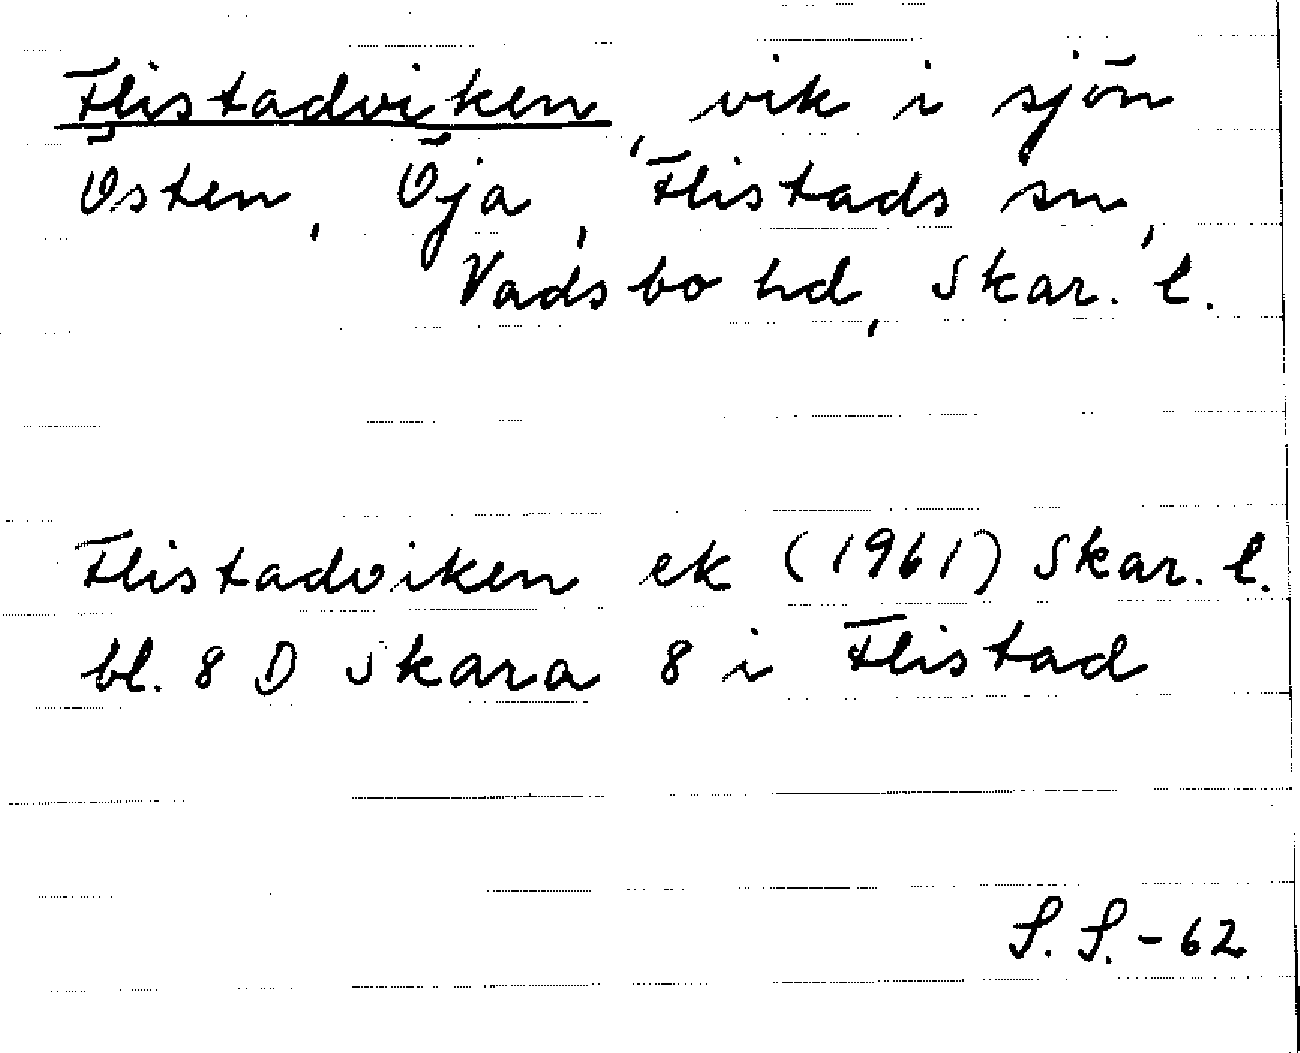 Flistadviken, vik i sjön
Östen, Öja, Flistads sn,
Vadsbo hd, Skar. l.
Flistadviken ek (1961) Skar. l.
bl. 8 D Skara 8 i Flistad
S. S. - 62